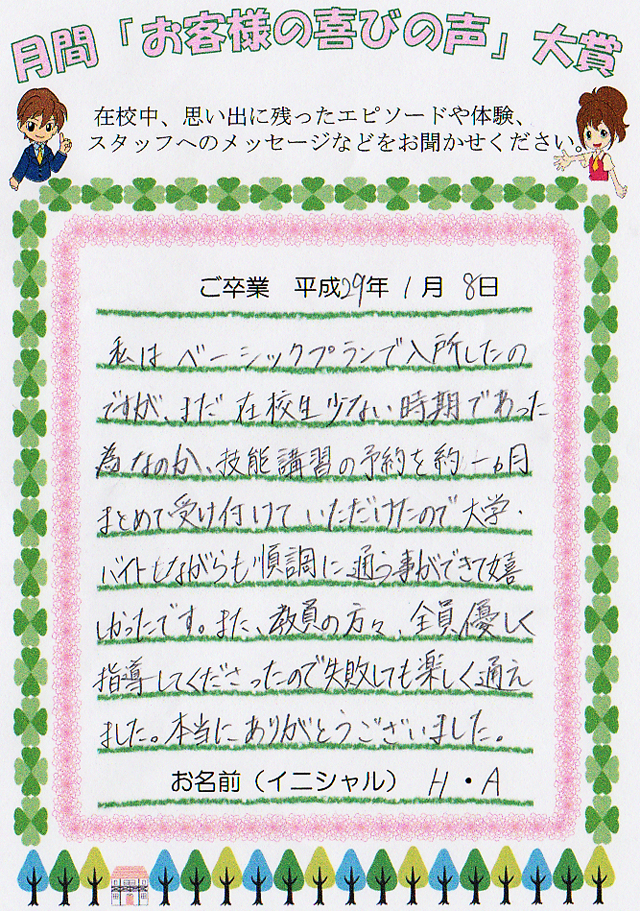 月間「お客様の喜びの声」大賞
在校中、思い出に残ったエピソードや体験、
スタッフへのメッセージなどをお聞かせください。
ご卒業　平成29年 1月 8日
私は ベーシックプランで入所したの
ですが、まだ在校生少ない時期であった
為なのか、技能講習の予約を約一ヵ月
まとめて受け付けて いただけたので 大学・
バイトもながらも順調に通う事ができて嬉
しかったです。また、教員の方々、全員優しく
指導してくださったので失敗しても楽しく通え
ました。本当にありがとうございました。
お名前（イニシャル） H・A